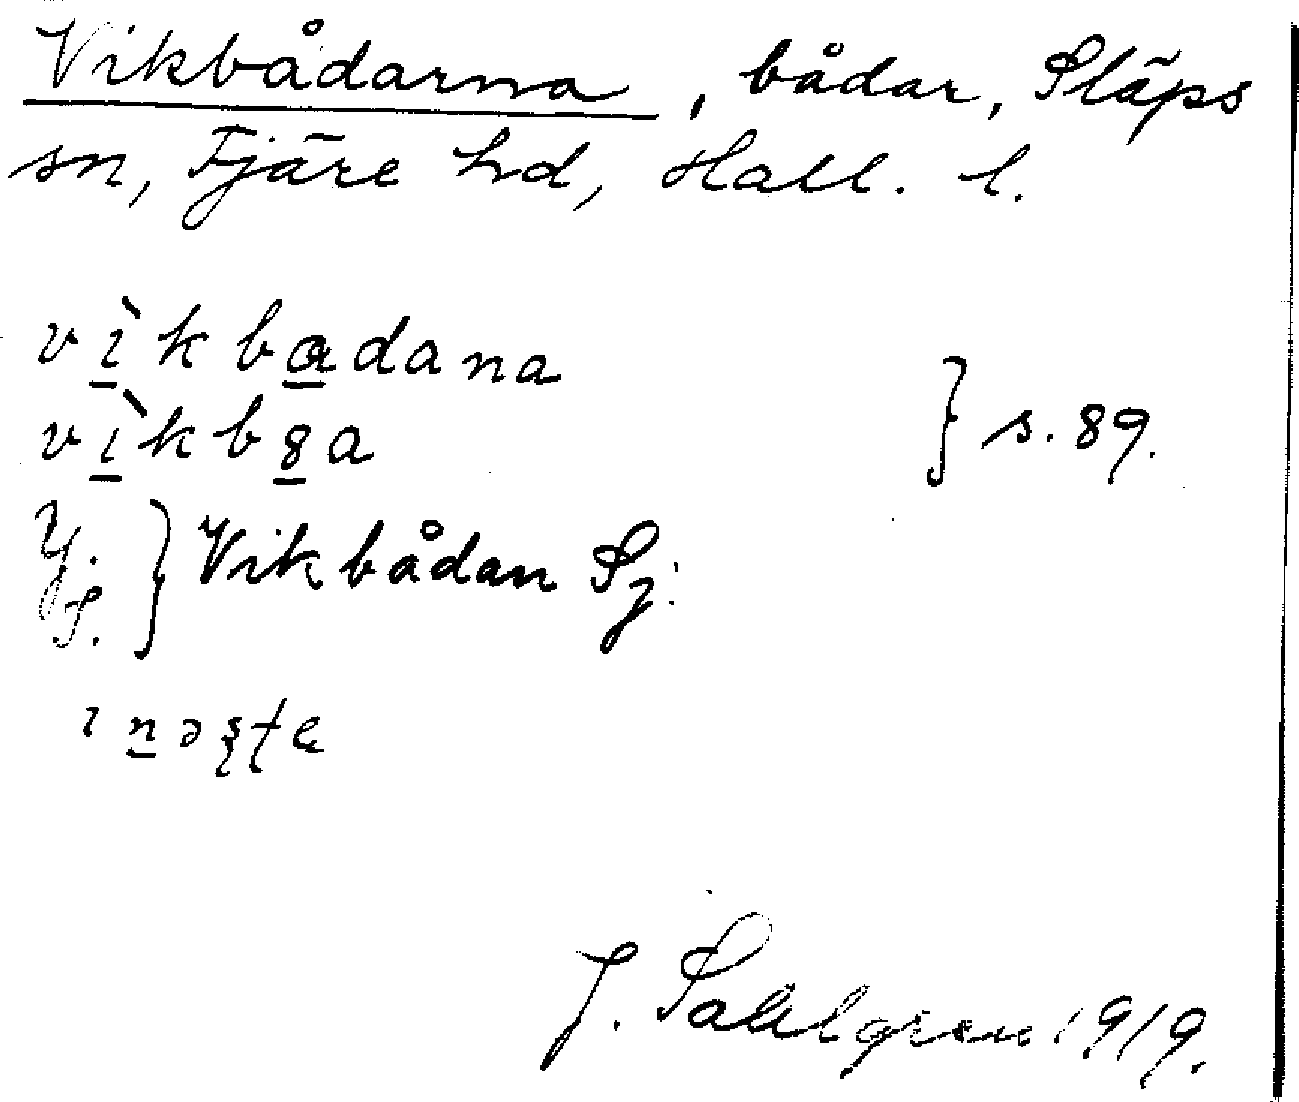 Vikbådarna, bådar, Släps
sn, Fjäre hd, Hall. l.
vìkbadana
vìkb8a } s. 89.
Y. S. } Vikbådan Sj.
ınəste
J. Sahlgren 1919.